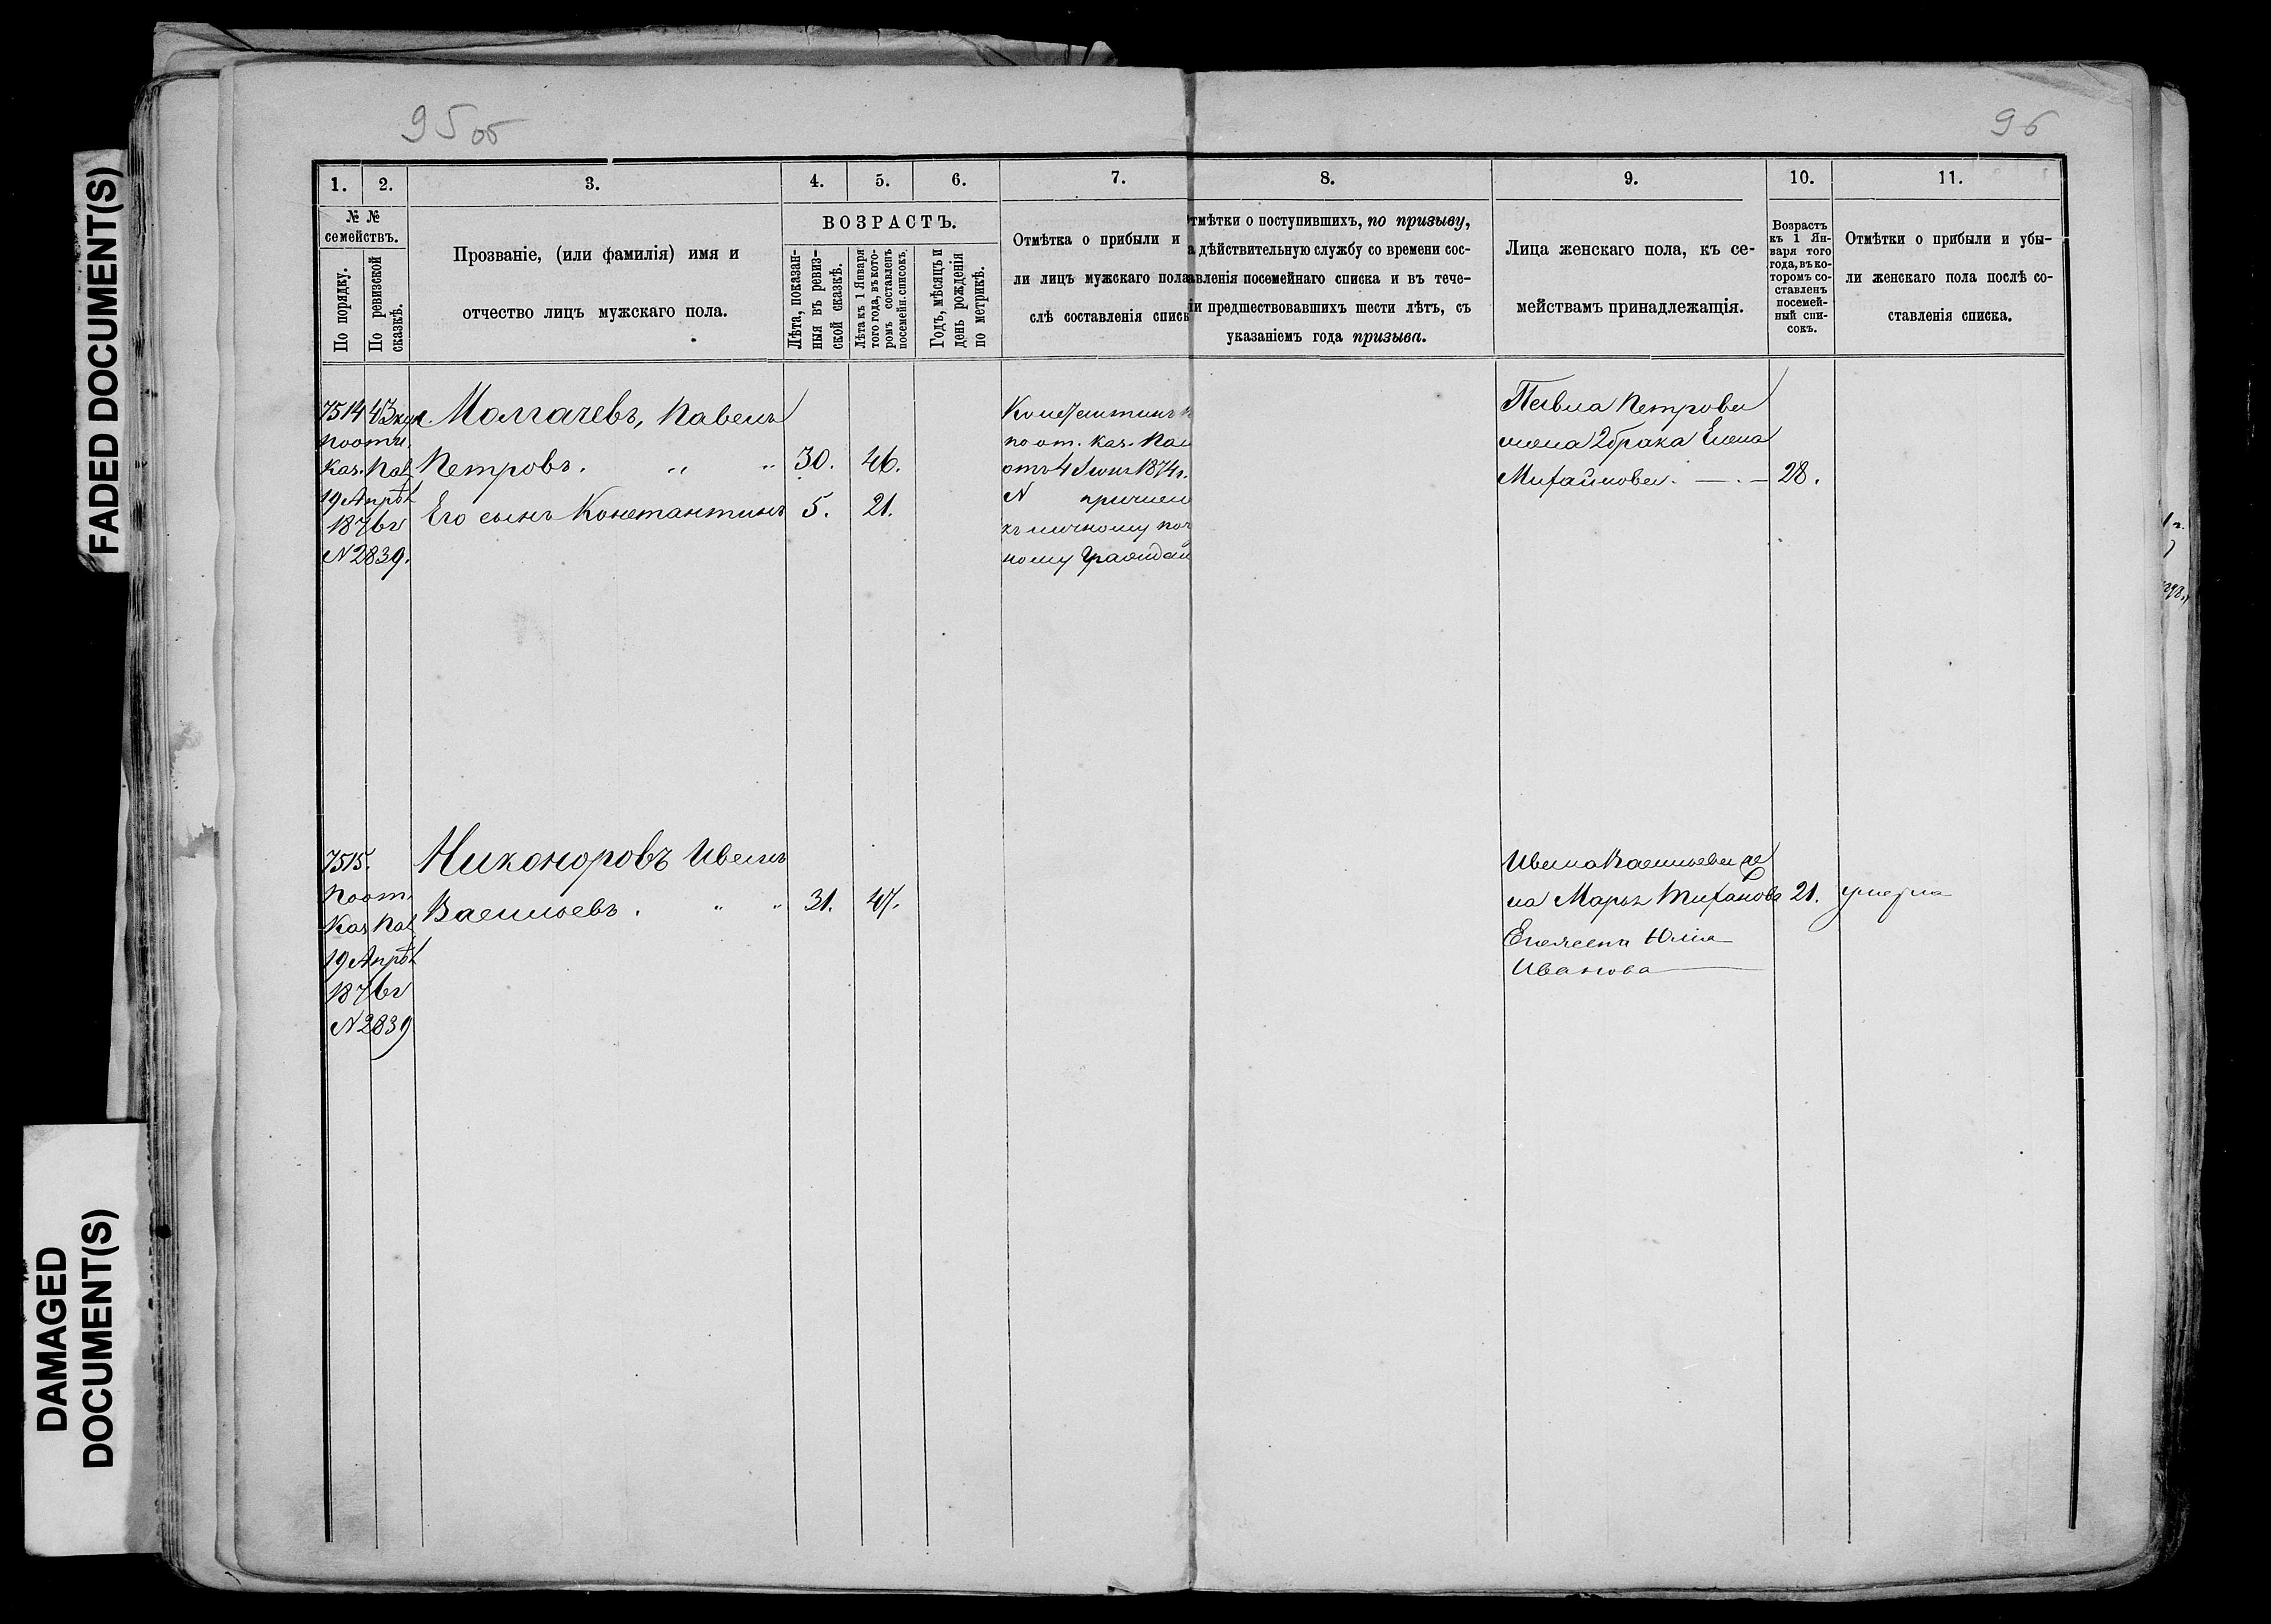 FADED DOCUMENT(S)
DAMAGED
DOCUMENT(S)
95 об
96
1.
2.
3.
4.
5.
6.
7.
8.
9.
10.
11.
№ №
семействъ.
По порядку.
По ревизской
сказкѣ.
Прозваніе, (или фамилія) имя и
отчество лицъ мужскаго пола.
ВОЗРАСТЪ.
Лѣта, показан-
ныя въ ревиз-
ской сказкѣ.
Лѣта къ 1 Января
того года, въ кото-
ромъ составленъ
посемейн. списокъ.
Годъ, мѣсяцъ и
день рожденія
по метрикѣ.
Отмѣтка о прибыли и
ли лицъ мужскаго пола
слѣ составленія списк
тмѣтки о поступившихъ, по призыву,
а дѣйствительную службу со времени сос-
авленія посемейнаго списка и въ тече-
іи предшествовавшихъ шести лѣтъ, съ
указаніемъ года призыва.
Лица женскаго пола, къ се-
мействамъ принадлежащія.
Возрастъ
къ 1 Ян-
варя того
года, въ ко-
торомъ со-
ставленъ
посемей-
ный спи-
сокъ.
Отмѣтки о прибыли и убы-
ли женскаго пола послѣ со-
ставленія списка.
7514 43 куп. Молгачевъ, Павелъ
по отн.
Каз. Пал. Петровъ. " " 30. 46.
19 Апрѣл
Его сынъ Константинъ 5. 21.
1876 г
N 2839.
Константинъ П
по от. Каз. Пал
отъ 4 Июня 1874 г.
N причисл
къ личному поч
ному Граждан
Павла Петрова
жена 2 брака Елена
Михайлова. — . — 28.
7515. Никоноровъ Иванъ
По от.
Васильевъ. " " 31. 47.
Каз Пал
19 Апрѣл
1876 г
N 2839
Ивана Васильева же
на Марья Тифанова 21. умерла
Юлія
Иванова